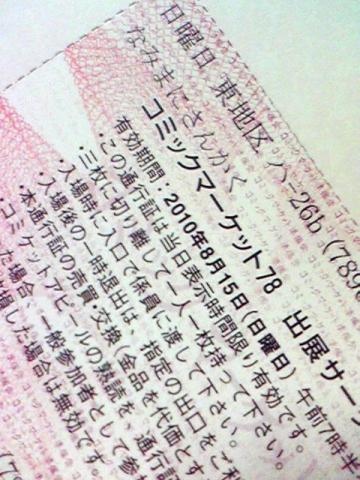 日曜日 東地区 ハ-26b (789
なみまにさんかく
コミックマーケット78 出展サー
有効期間：2010年8月15日(日曜日) 午前7時半
・この通行証は当日表示時間限り有効です。
・三枚に切り離して一人一枚持って下さい。
・入場時に入口で係員に渡して下さい。
・入場後の一時退出は、指定の出口をご利
・本通行証の売買・交換(金品を代価とす
・コミケットアピールの熟読を、通行証
た場合、一般参加者として参
損した場合は無効です